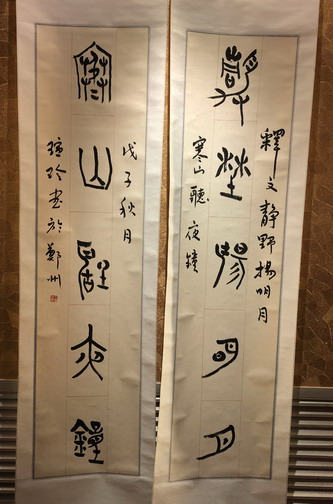 釋文静野揚明月
靜埜揚明月
寒山聽夜鐘
戊子秋月
寒山聽夜鐘
玲书於鄭州